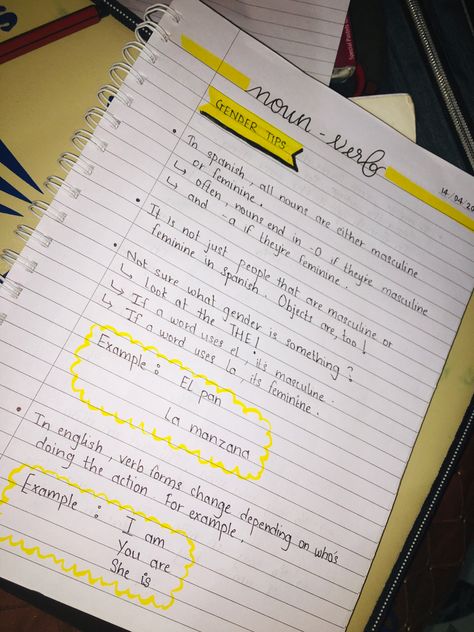 noun - verb
14/04/20
GENDER TIPS
• In spanish, all nouns are either masculine
or feminine.
↳ often, nouns end in -o if they're masculine
and -a if they're feminine.
• It is not just people that are masculine or
feminine in spanish. Objects are, too!
• Not sure what gender is something?
↳ Look at the THE!
↳ If a word uses el, it's masculine.
↳ If a word uses la, its feminine.
Example: El pan
La manzana
• In english, verb forms change depending on who's
doing the action. For example,
Example: I am
You are
She is